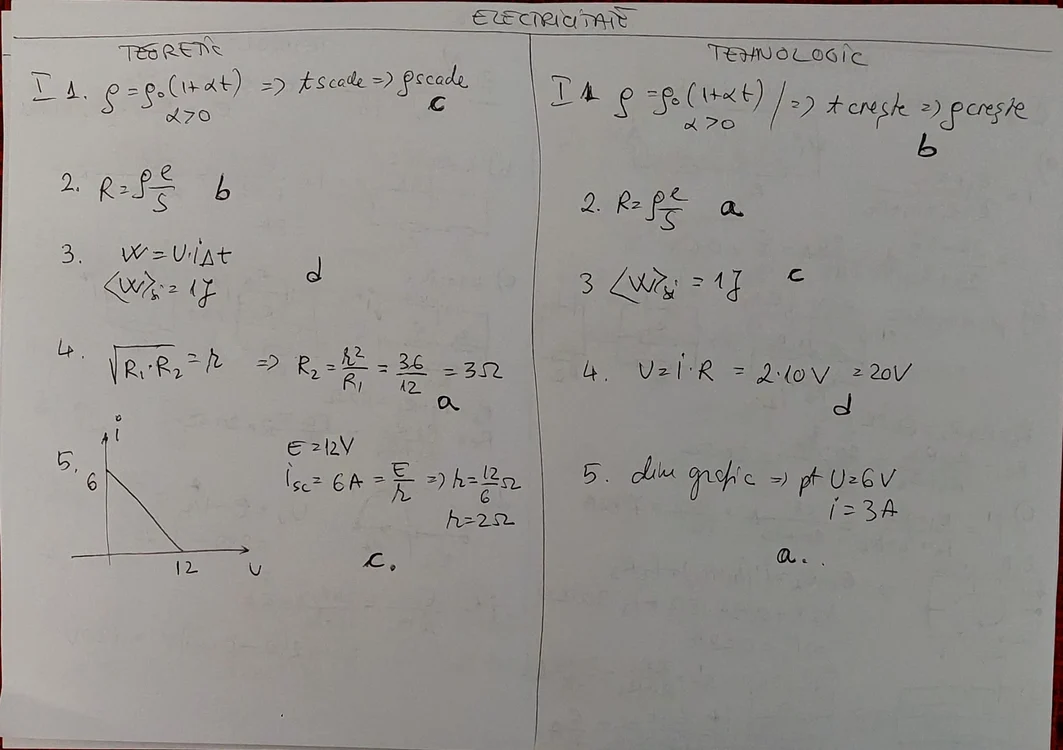 ELECTRICITATE
TEORETIC
I 1. ρ = ρ₀(1+αt) => t scade => ρ scade
α>0
c
2. R = ρ ℓ/S b
3. W = U·i Δt
<W>si = 1J d
4. √(R₁·R₂) = r => R₂ = r²/R₁ = 36/12 = 3Ω
a
5.
i
6
12
U
E = 12V
isc = 6A = E/r => r = 12/6 Ω
r = 2Ω
c.
TEHNOLOGIC
I 1 ρ = ρ₀(1+αt) / => t crește => ρ crește
α>0
b
2. R = ρ ℓ/S a
3 <W>si = 1J c
4. U = i·R = 2·10V = 20V
d
5. din grafic => pt U = 6V
i = 3A
a..